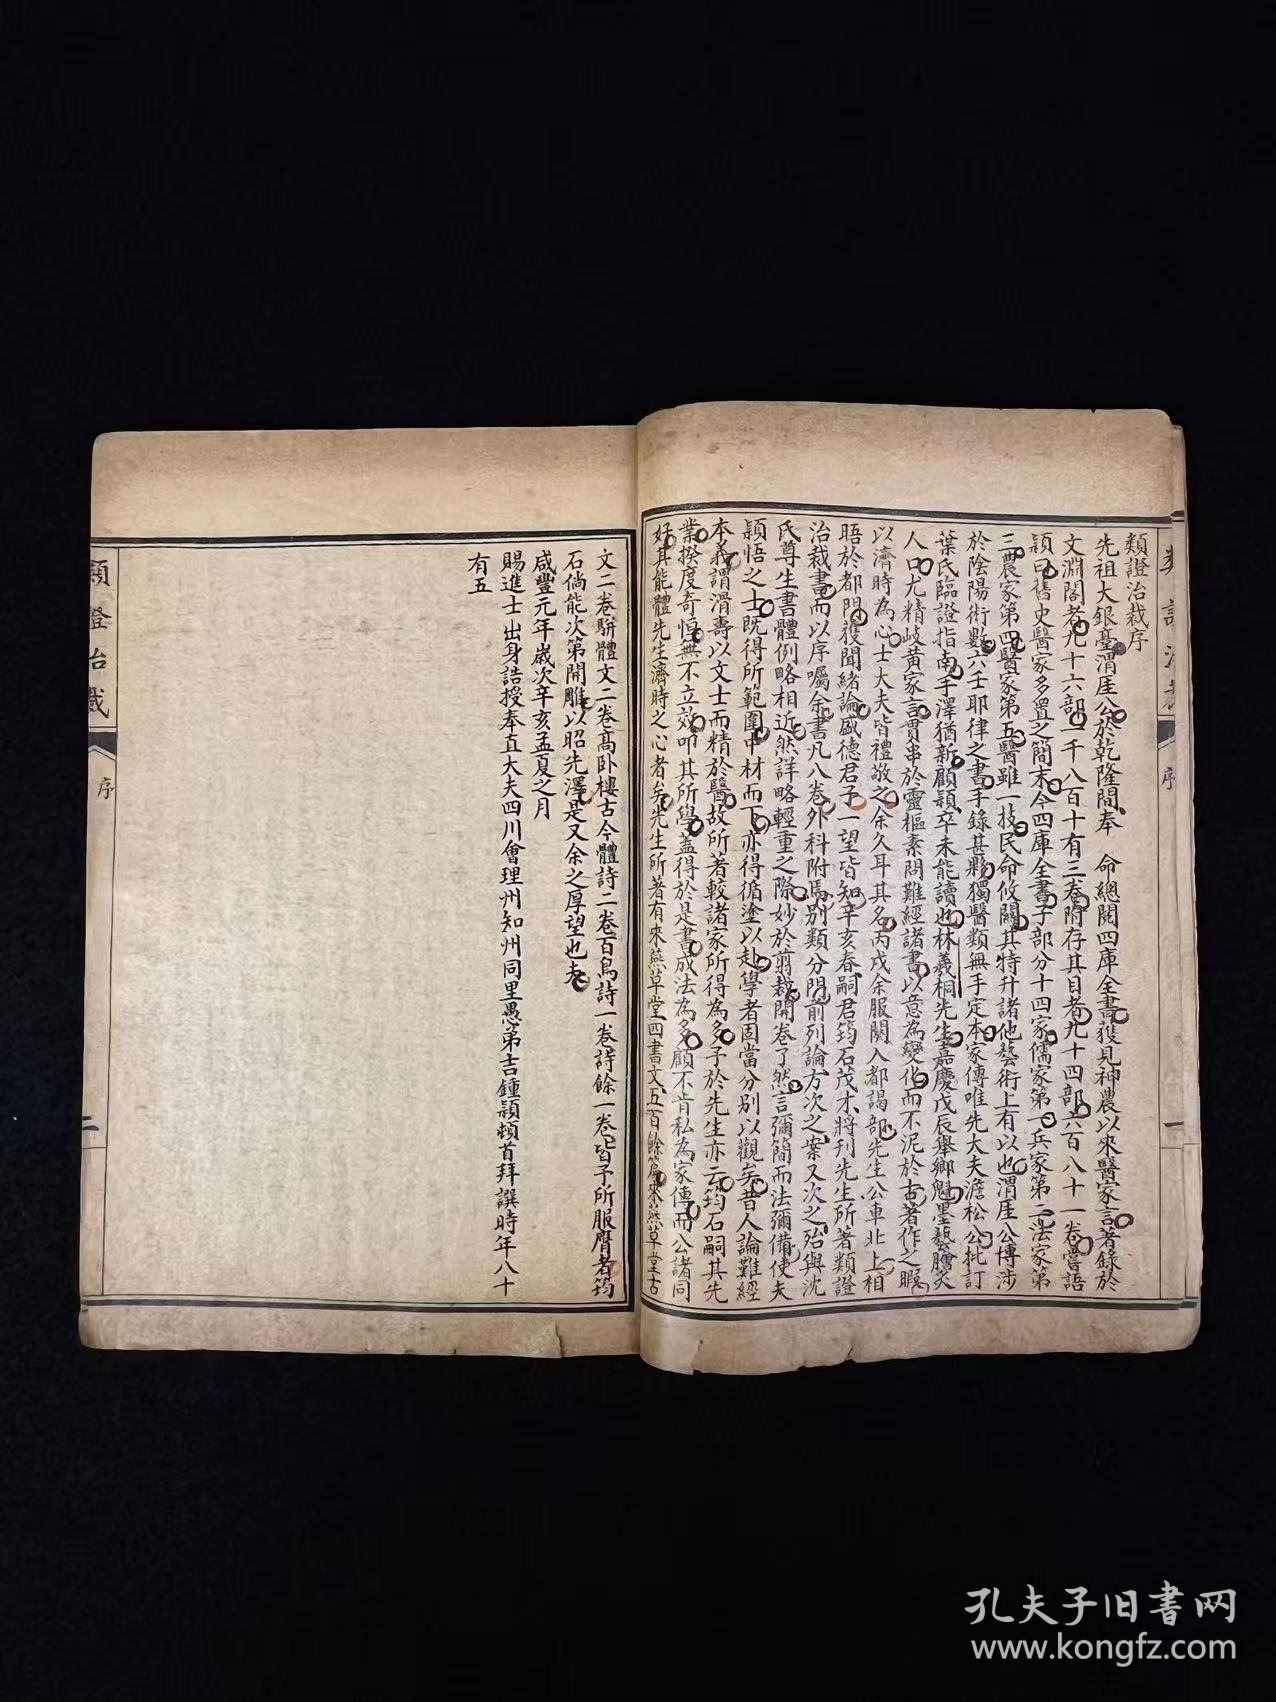 類證治裁序
先祖大銀臺渭厓公於乾隆間奉 命總閱四庫全書獲見神農以來醫家言著錄於
文淵閣者九十六部一千八百十有三卷附存其目者九十四部六百八十一卷嘗語
穎曰舊史醫家多置之簡末今四庫全書子部分十四家儒家第一兵家第二法家第
三農家第四醫家第五醫雖一技民命攸關其特升諸他藝術上有以也渭厓公博涉
於陰陽術數六壬耶律之書手錄甚夥獨醫類無手定本家傳唯先大夫澹松公批訂
葉氏臨證指南手澤猶新顧穎卒未能讀也林羲桐先生嘉慶戊辰舉鄉魁墨藝膾炙
人口尤精岐黃家言貫串於靈樞素問難經諸書以意為變化而不泥於古著作之暇
以濟時為心士大夫皆禮敬之余久耳其名丙戌余服闋入都謁部先生公車北上相
晤於都門獲聞緒論盛德君子一望皆知辛亥春嗣君筠石茂才將刋先生所著類證
治裁書而以序囑余書凡八卷外科附焉別類分門前列論方次之案又次之殆與沈
氏尊生書體例略相近然詳略輕重之際妙於剪裁開卷了然言彌簡而法彌備使夫
穎悟之士既得所範圍中材而下亦得循塗以赴學者固當分別以觀矣昔人論難經
本義謂滑壽以文士而精於醫故所著較諸家所得為多予於先生亦云筠石嗣其先
業揆度奇恒無不立效叩其所學蓋得於是書成法為多顧不肯私為家傳而公諸同
好其能體先生濟時之心者矣先生所著有來燕草堂四書文五百餘篇來燕草堂古
類證治裁
序
一
文二卷駢體文二卷高卧樓古今體詩二卷百鳥詩一卷詩餘一卷皆予所服膺者筠
石倘能次第開雕以昭先澤是又余之厚望也夫
咸豐元年歲次辛亥孟夏之月
賜進士出身誥授奉直大夫四川會理州知州同里愚弟吉鍾穎頓首拜譔時年八十
有五
類證治裁
序
二
孔夫子旧书网
www.kongfz.com